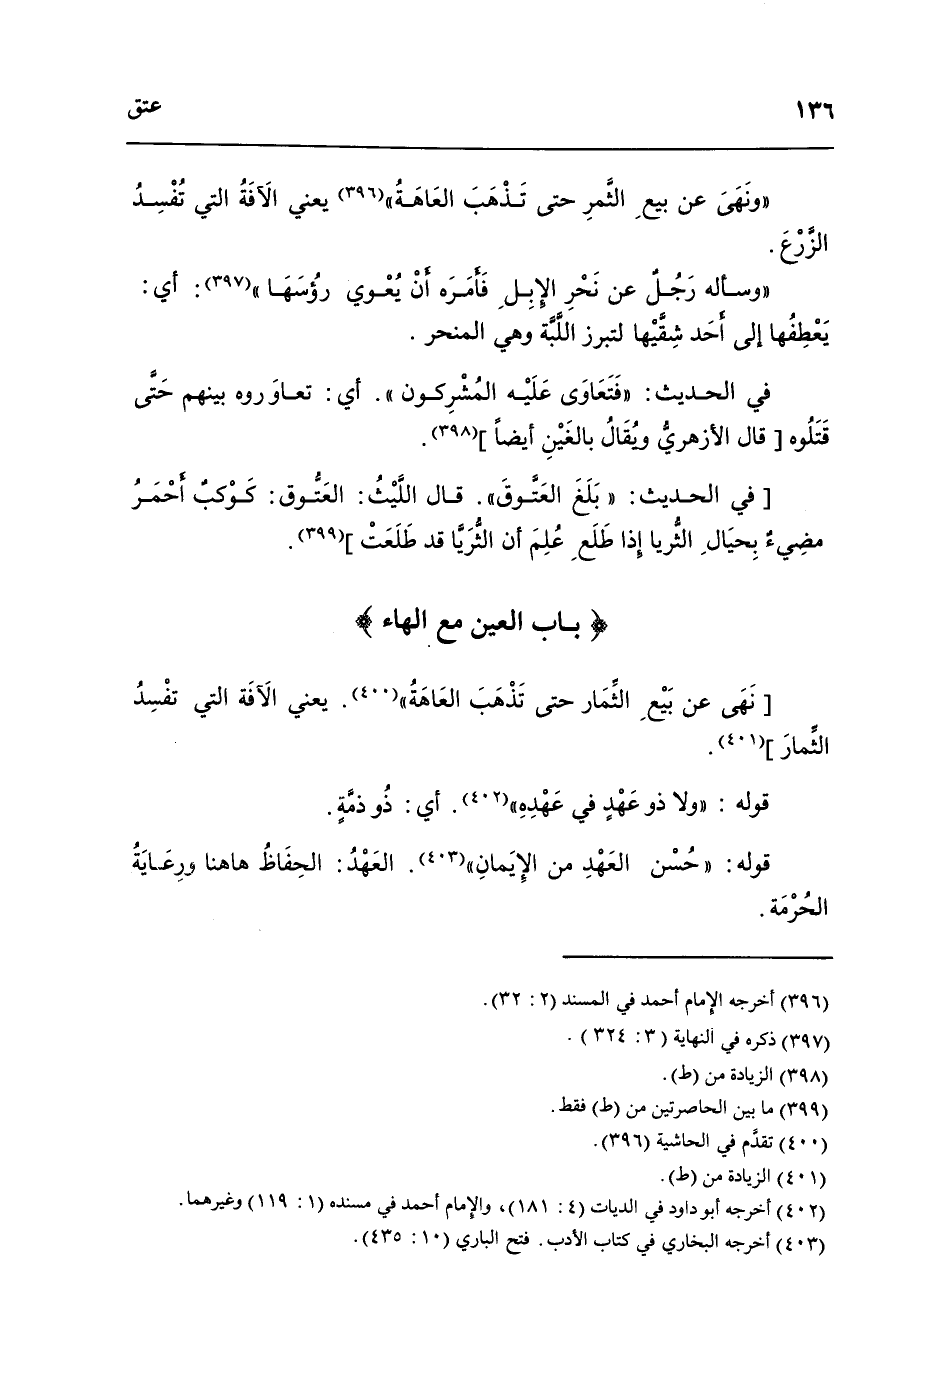 ١٣٦ عتق
«ونَهَىَ عن بيعِ الثَّمرِ حتى تَـذْهَبَ العَاهَـةُ»(٣٩٦) يعني الَآفَةُ التي تُفْسِـدُ
الزَّرْعَ .
«وسـأله رَجُـلٌ عن نَحْرِ الإِبِـلِ فَأَمَـرَه أَنْ يُعْـوي رؤُسَهَـا »(٣٩٧): أي:
يَعْطِفُها إلى أَحَد شِقَّيْها لتبرز اللَّبَّة وهي المنحر .
في الحـديث: «فَتَعَاوَى عَلَيْـه المُشْرِكـون ». أي: تعـاوَروه بينهم حَتَّى
قَتَلُوه [ قال الأزهريُّ ويُقَالُ بالغَيْنِ أيضاً ](٣٩٨).
[ في الحـديث: « بَلَغَ العَتُّـوقَ». قـال اللَّيْثُ: العَتُّـوق: كَـوْكبٌ أَحْمَـرُ
مضِيءٌ بِحيَالِ الثُّريا إذا طَلَعِ عُلِمَ أن الثُّرَيَّا قد طَلَعَتْ ](٣٩٩).
﴿ بـاب العين مع الهاء ﴾
[ نَهَى عن بَيْعِ الثِّمَار حتى تَذْهَبَ العَاهَةُ»(٤٠٠). يعني الَآفَة التي تفْسِدُ
الثِّمارَ ](٤٠١).
قوله : «ولا ذو عَهْدٍ في عَهْدِهِ»(٤٠٢). أي: ذُو ذمَّةٍ.
قوله: « حُسْن العَهْدِ من الإِيَمانِ»(٤٠٣). العَهْدُ: الحِفَاظُ هاهنا ورِعَـايَةُ
الحُرْمَة .
(٣٩٦) أخرجه الإِمام أحمد في المسند (٢ : ٣٢).
(٣٩٧) ذكره في النهاية ( ٣ : ٣٢٤ ) .
(٣٩٨) الزيادة من (ط).
(٣٩٩) ما بين الحاصرتين من (ط) فقط.
(٤٠٠) تقدَّم في الحاشية (٣٩٦).
(٤٠١) الزيادة من (ط).
(٤٠٢) أخرجه أبو داود في الديات (٤ : ١٨١)، والإمام أحمد في مسنده (١ : ١١٩) وغيرهما.
(٤٠٣) أخرجه البخاري في كتاب الأدب. فتح الباري (١٠ : ٤٣٥).